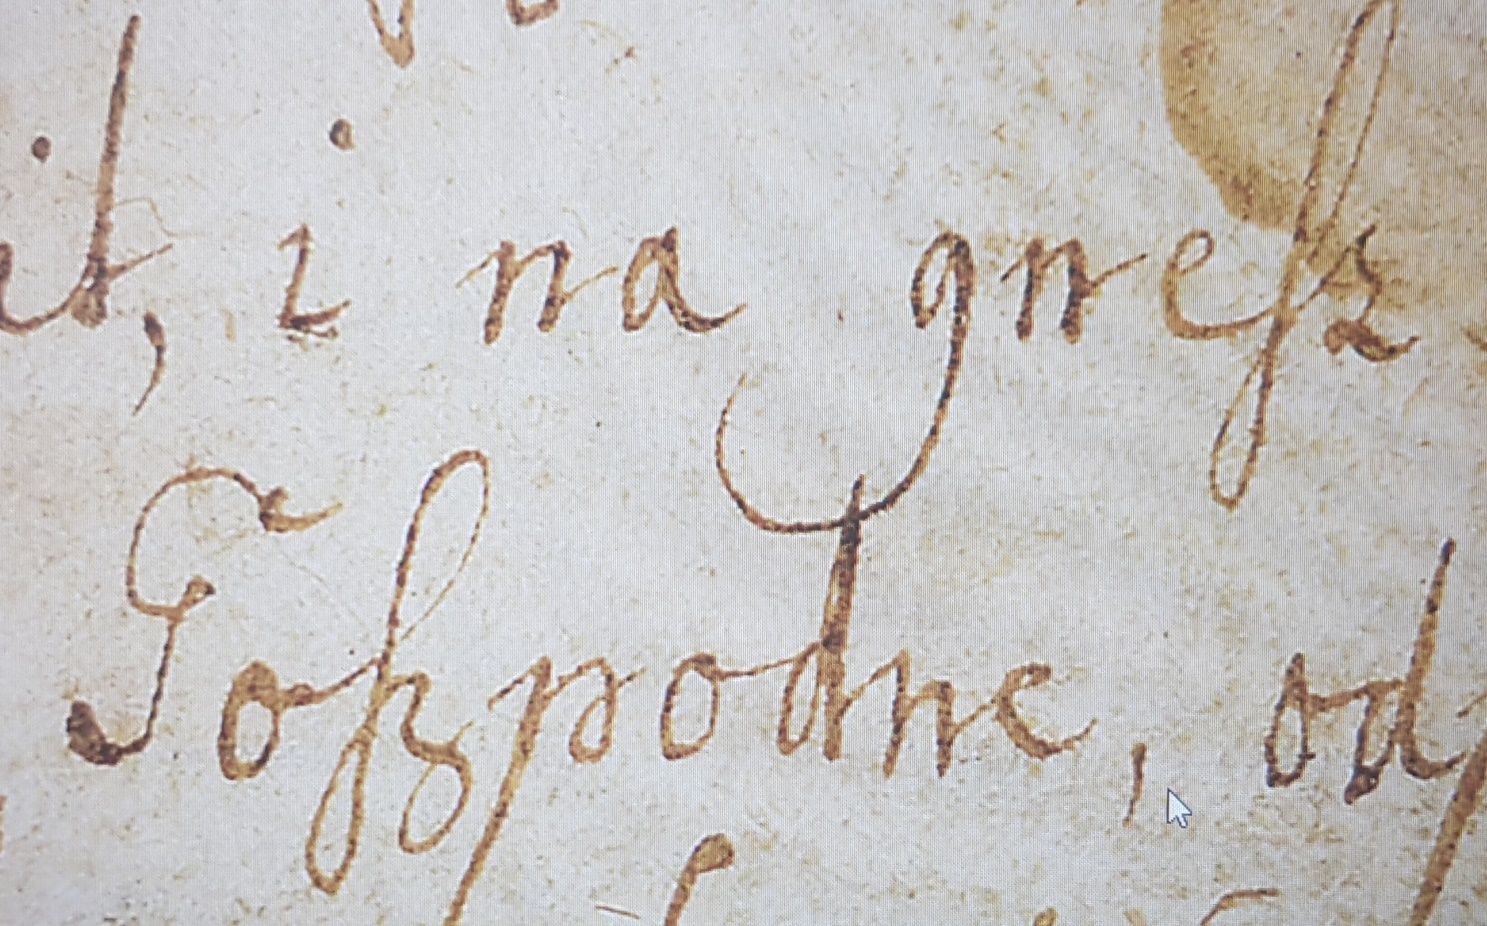 it, i na gneſz
Goſzpodne, od